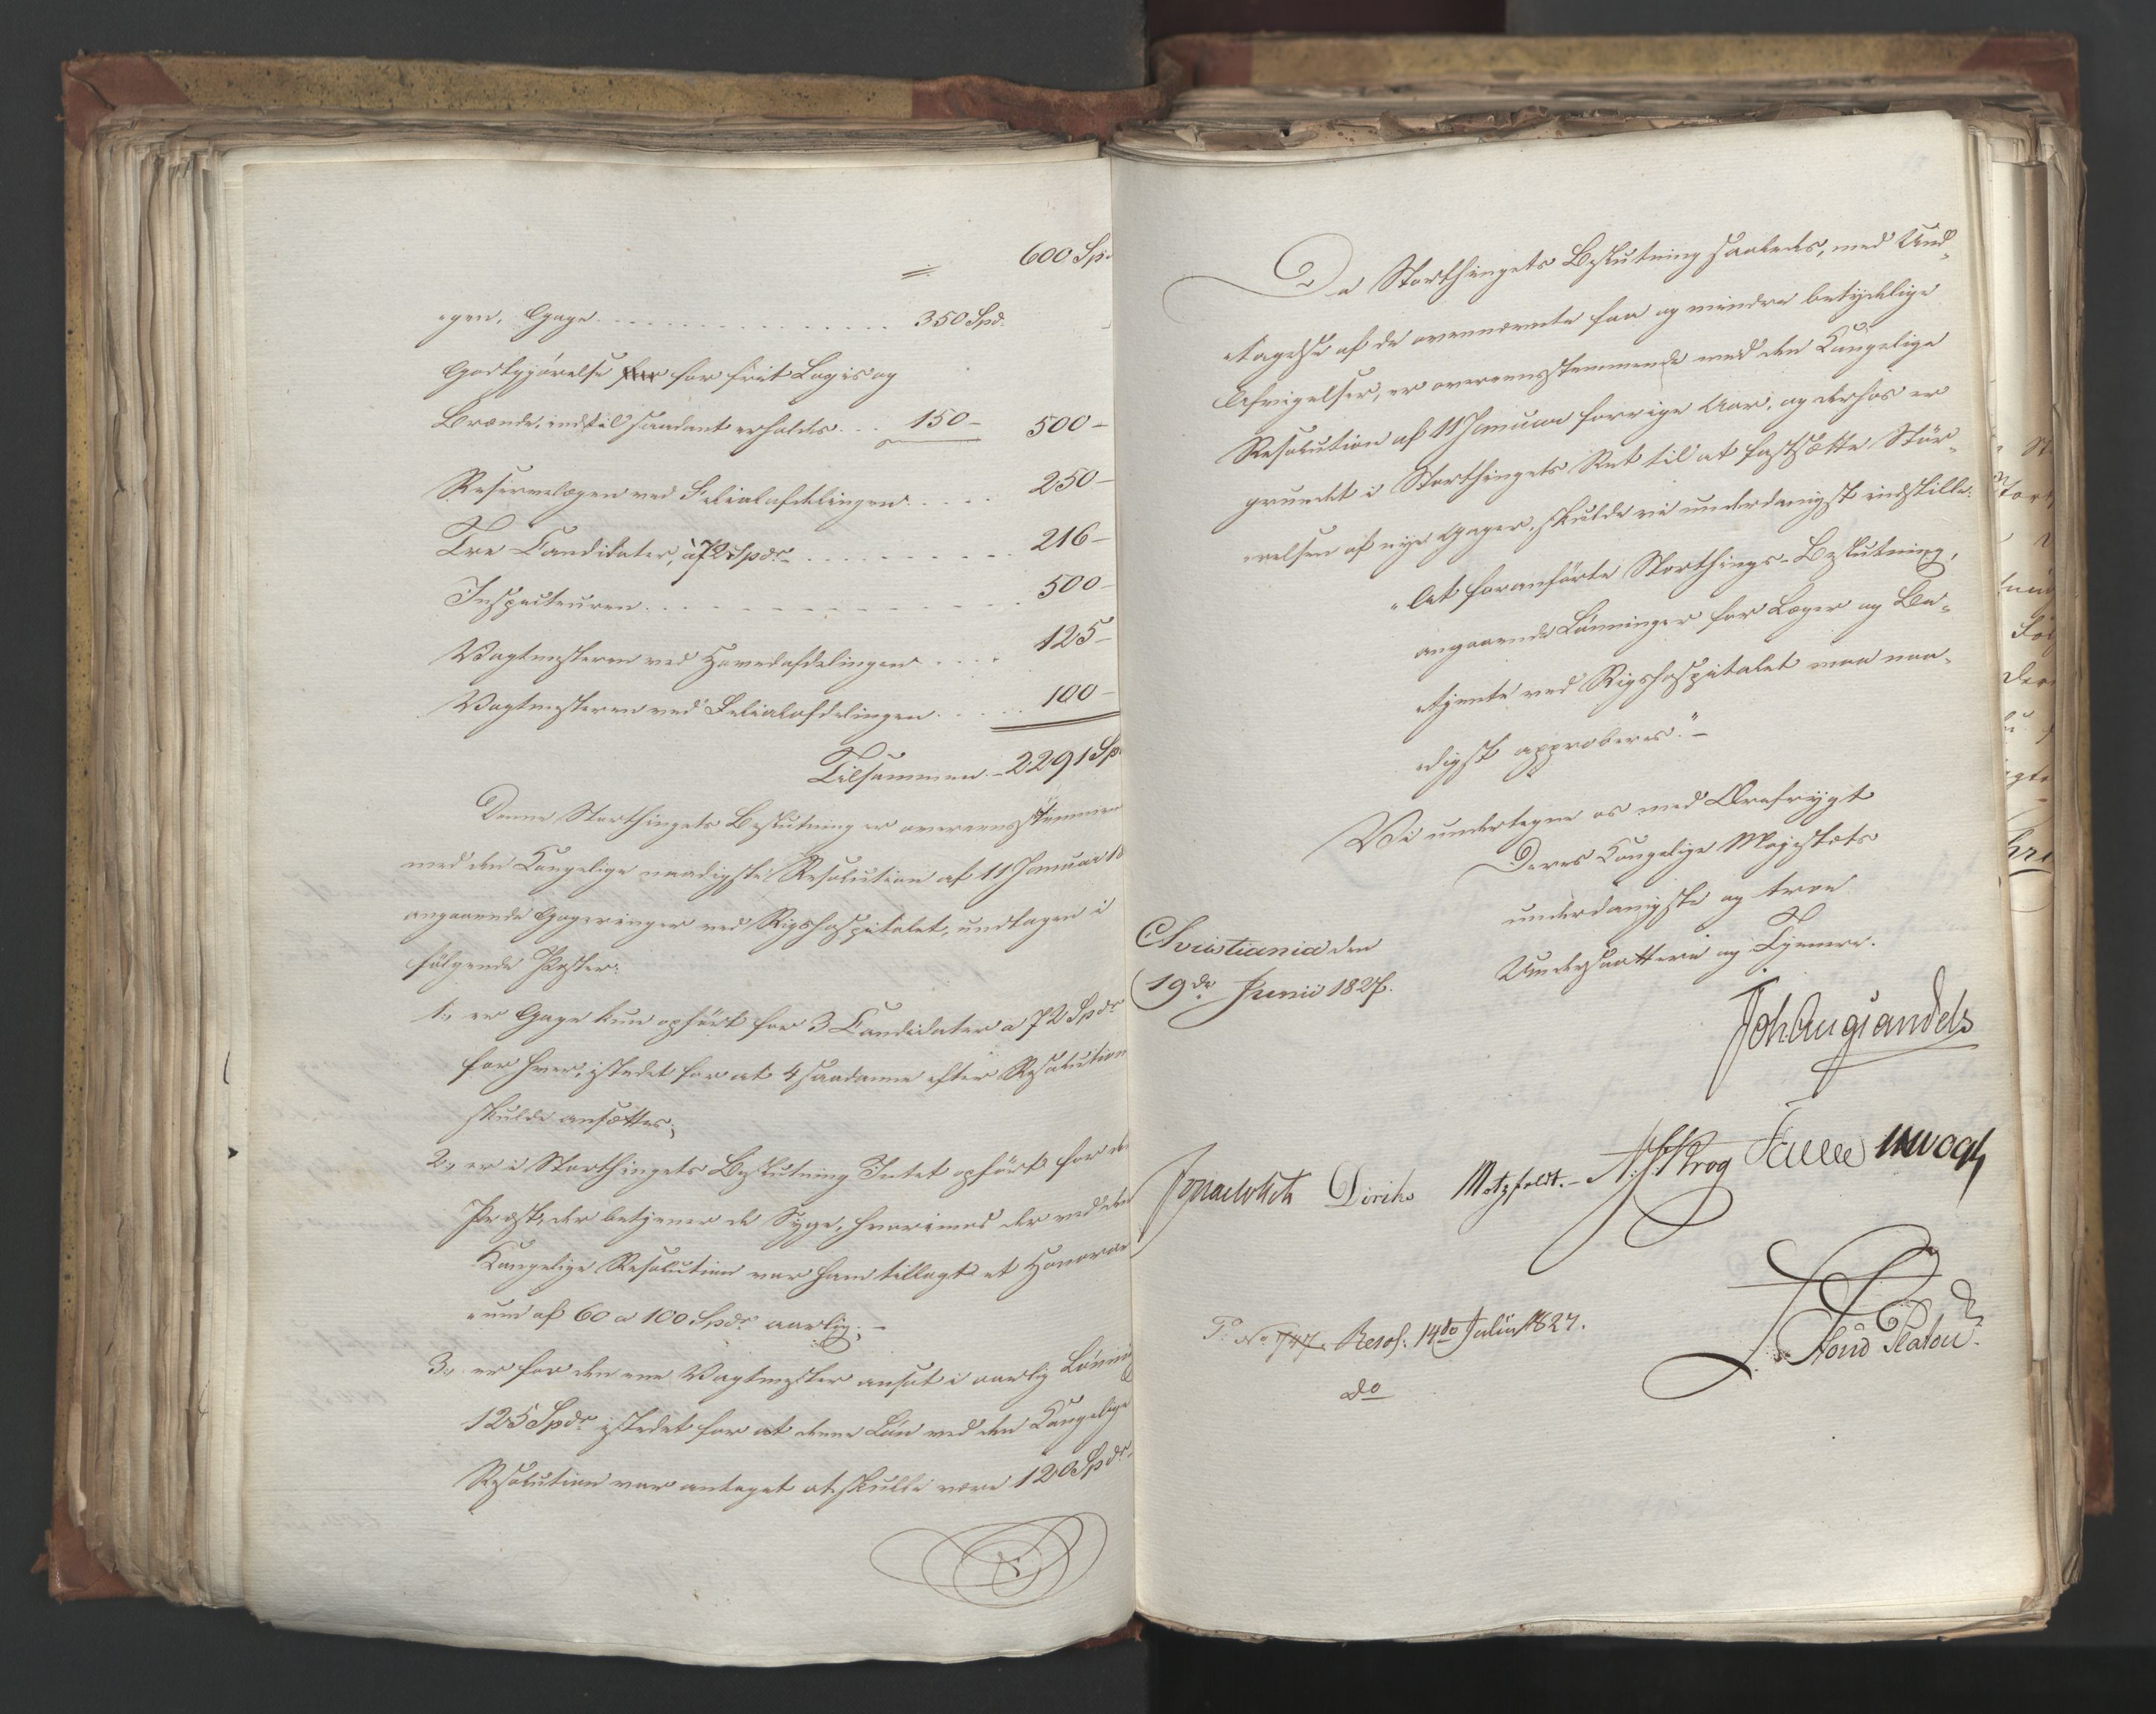 600 Spd
=
-gen, Gage . . . . . . . . . . . . . . . 350 Spd.
Godtgjörelse for for frit Logis og
Brænde, indtil saadant erholdes . . . 150 – 500 –
Reservelægen ved Filialafdelingen . . . . 250 –
Tre Candidater, à 72 Spdr. . . . . . . . . . . 216 –
Inspecteuren . . . . . . . . . . . . . 500 –
Vagtmesteren ved Hovedafdelingen . . . . 125 –
Vagtmesteren ved Filialafdelingen . . . . . 100 –
Tilsammen – 2291 Sp
Denne Storthingets Beslutning er overeensstemmen
med den Kongelige naadigste Resolution af 11 Januar 18
angaaende Gageringer ved Rigshospitalet, undtagen i
fölgende Poster:
1., er Gage kun opfört for 3 Candidater a 72 Spdr
for hver, istedet for at 4 saadanne efter Resolution
skulde ansættes;
2., er i Storthingets Beslutning Intet opfört for den
Præst, der betjener de Syge, hvorimod der ved den
Kongelige Resolution var ham tillagt et Honorar
-um af 60 a 100 Spdr. aarlig; –
3., er for den ene Vagtmester ansat i aarlig Lönning
125 Spdr. istedet for at denne Lön ved den Kongelige
Resolution var antaget at skulle være 120 Spdr.
Da Storthingets Beslutning saaledes, med Und-
-tagelse af de ovennævnte faa og mindre betydelige
Afvigelser, er overeensstemmende med den Kongelige
Resolution af 11 Januar forrige Aar, og derhos er
grundet i Storthingets Ret til at fastsætte Stör-
-relsen af nye Gager, skulde vi underdanigst indstille:
"At foranförte Storthings-Beslutning,
angaaende Lönninger for Læger og Be-
-tjente ved Rigshospitalet maa naa-
-digst approberes." –
Vi undertegne os med Ærefrygt
Deres Kongelige Majestæts
underdanigste og troe
Undersaatter og Tjenere.
Christiania den
19de Junii 1827.
Joh Aug Sandels
Jonas Collett Diriks Motzfeldt. – A. S. Krog Fasting JHVogt
Po. No 747. Resol: 14de Julii 1827.
do
Stoud Platou